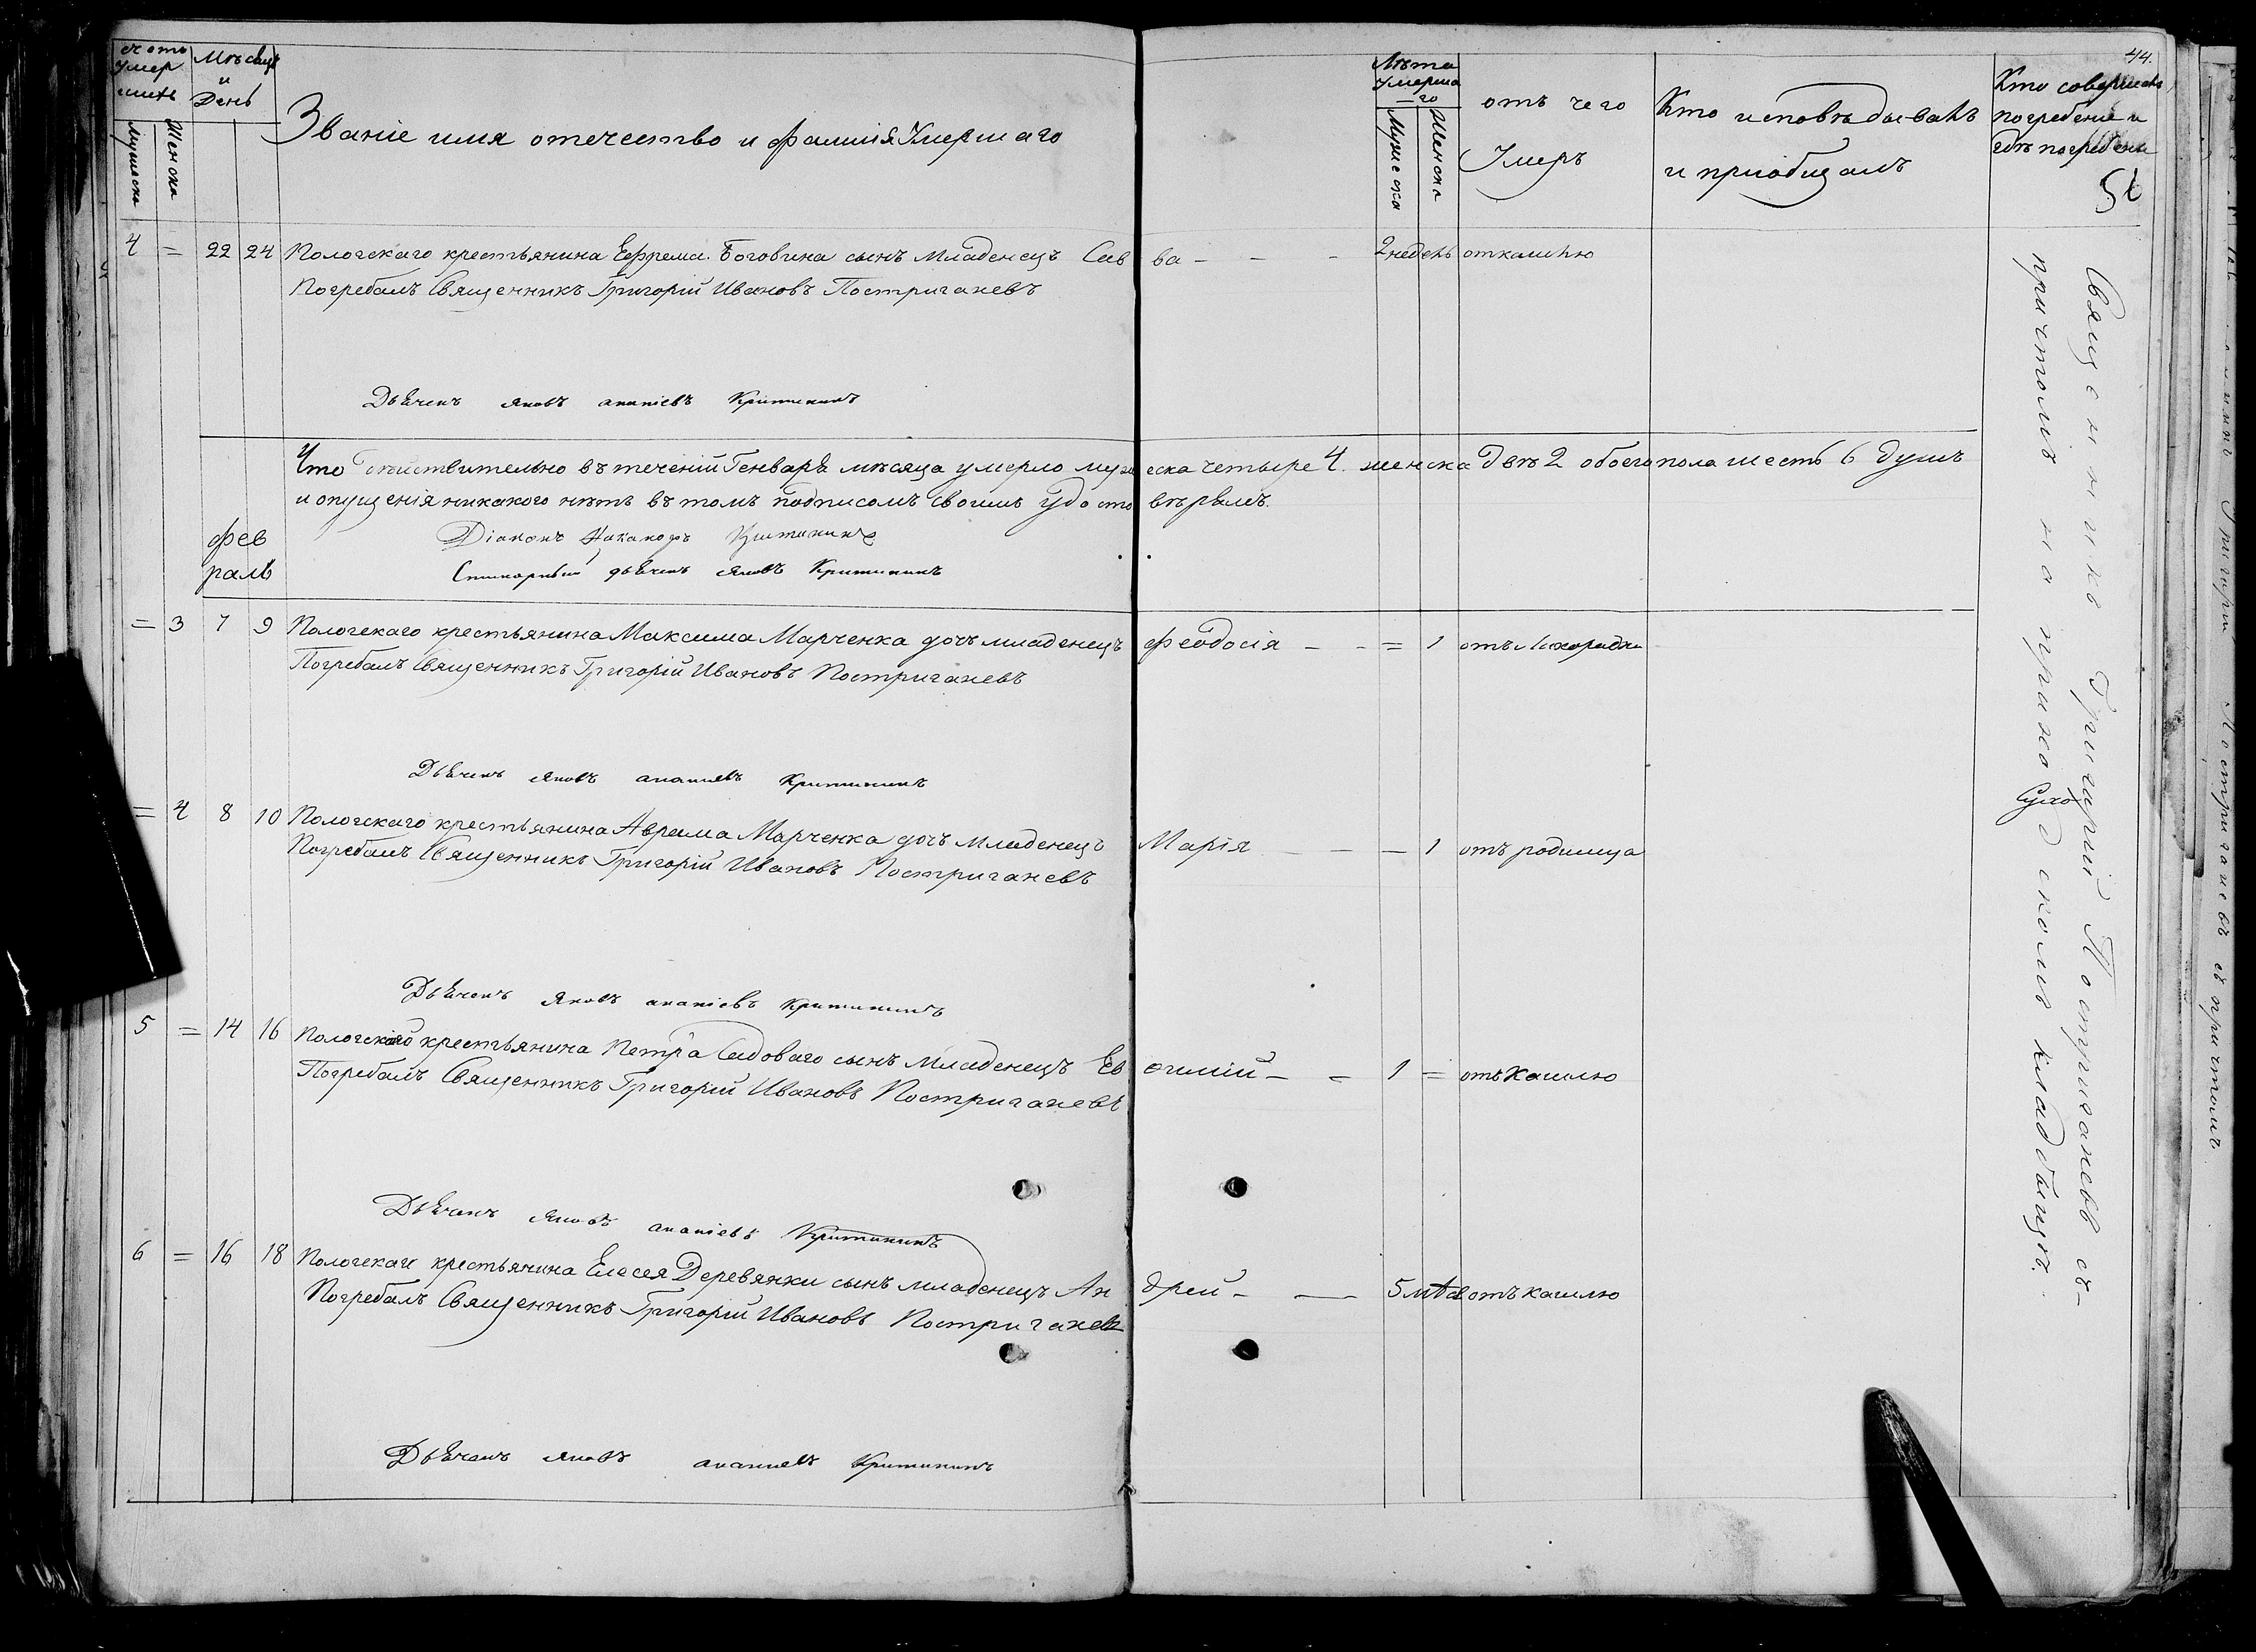 44.
счетъ Умер шихъ
Мужеска
Женска
Мѣсяцъ и День
Званіе имя отечество и фамилія Умершаго
Лѣта Умершаго
Мужеска
Женска
отъ чего Умеръ
Кто исповѣдывалъ и приобщалъ
Кто совершалъ погребеніе и гдѣ погребены
4 = 22 24 Пологскаго крестьянина Ефрема Боговина сынъ младенецъ Сав ва - - - 2 недель откашлю
Погребалъ Священникъ Григорій Ивановъ Постриганевъ
Дьячекъ Яковъ ананіевъ Критининъ
Что дѣйствительно въ теченій Генваря мѣсяца умерло муж еска четыре 4. женска двѣ 2 обоего пола шесть 6 душъ
и опущенія никакого нѣтъ въ томъ подписомъ своимъ удосто вѣряемъ.
Діаконъ Никаноръ
фев раль
дьячекъ Яковъ Критининъ
= 3 7 9 Пологскаго крестьянина Максима Марченка дочъ младенецъ Феодосія - - = 1 отъ лихорадки
Погребалъ Священникъ Григорій Ивановъ Постриганевъ
Дьячекъ Яковъ ананиевъ Критининъ
= 4 8 10 Пологскаго крестьянина Аврама Марченка дочъ младенецъ Марія - - - 1 отъ родимца
Погребалъ Священникъ Григорій Ивановъ Постриганевъ
Дьячекъ Яковъ ананіевъ Критининъ
5 = 14 16 Пологскаго крестьянина Петра Садоваго сынъ младенецъ Ев фимій - - 1 = отъ кашлю
Погребалъ Священникъ Григорій Ивановъ Постриганевъ
Дьячекъ Яковъ ананіевъ Критининъ
6 = 16 18 Пологскаго крестьянина Елесея Деревянки сынъ младенецъ Ан дрей - — 5 отъ кашлю
Погребалъ Священникъ Григорій Ивановъ Постриганевъ
Дьячекъ Яковъ ананиевъ Критининъ
Священникъ Григорій Постриганевъ съ
причтомъ на приходскомъ кладбищѣ.